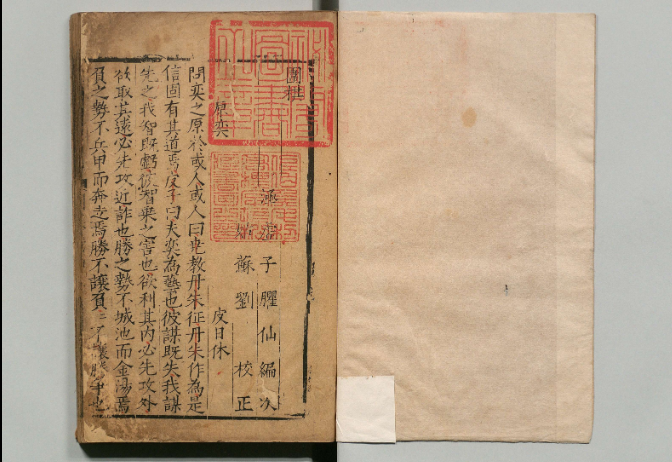 圍棋
涵虛子臞仙編次
蘇劉校正
原奕 皮日休
問奕之原於或人或人曰堯教丹朱征丹朱作為是
信固有其道焉皮子曰夫奕為藝也彼謀既失我謀
先之我智既虧彼智乘之害也欲利其內必先攻外
欲取其遠必先攻近詐也勝之勢不城池而金湯焉
負之勢不兵甲而奔走焉勝不讓負